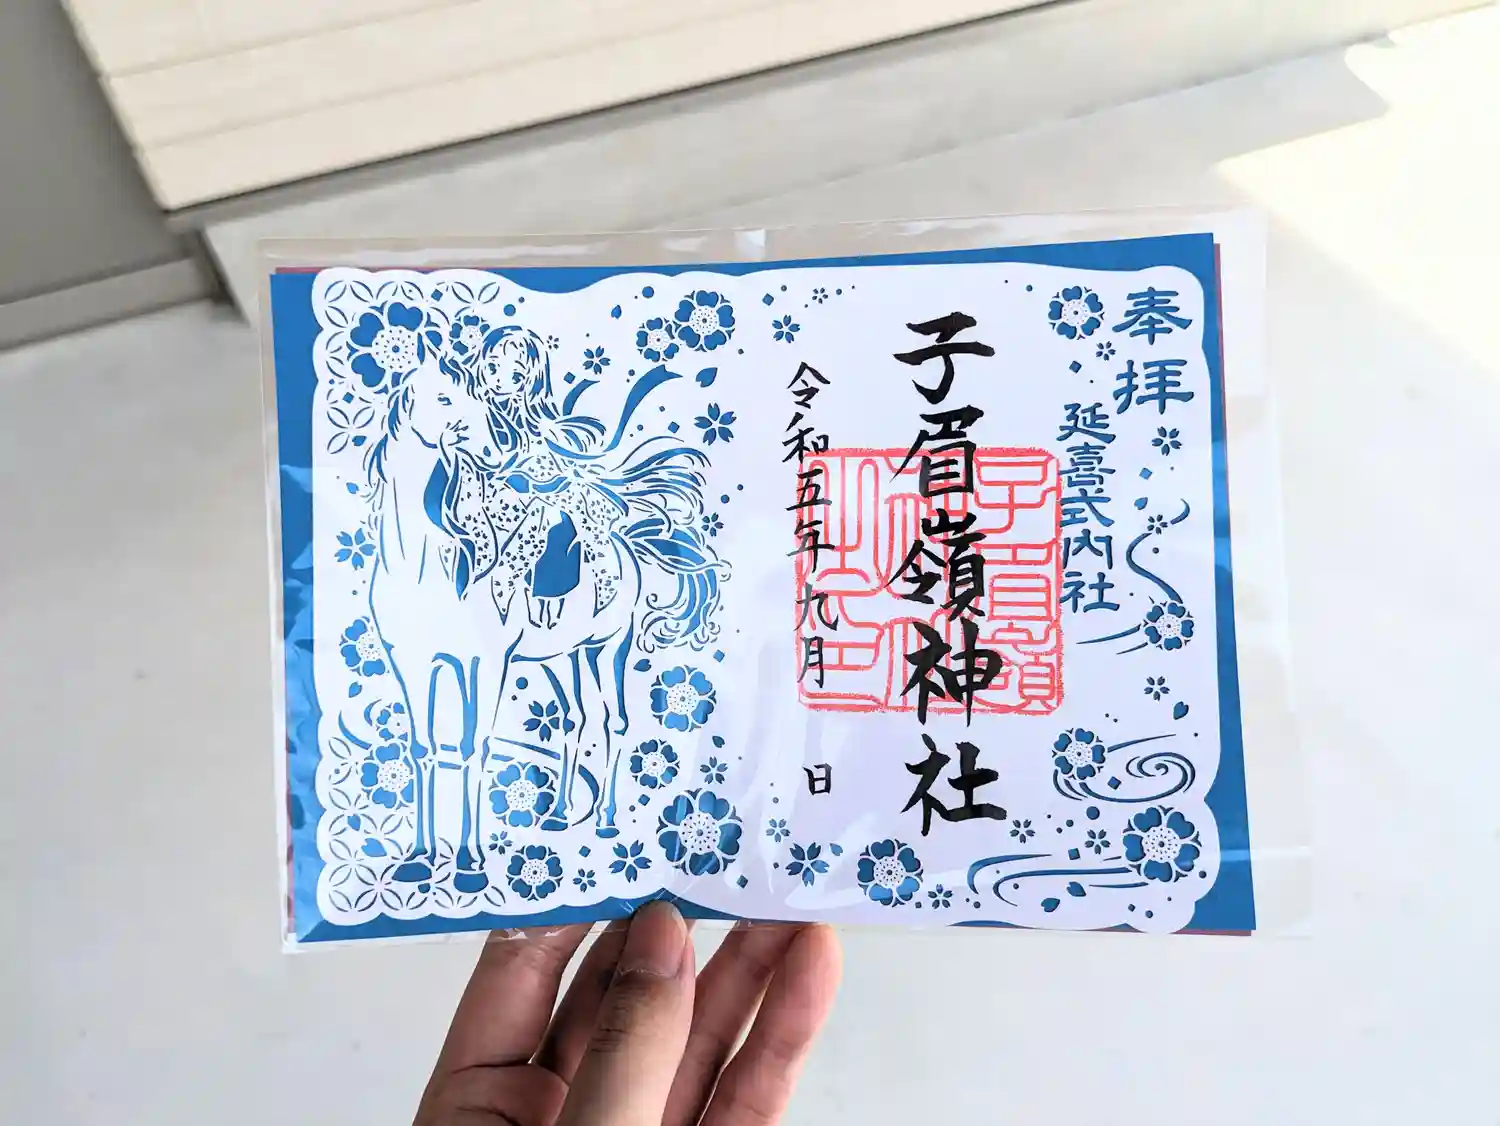 奉拝
延喜式内社
子眉嶺神社
子眉嶺
神社
之印
令和五年九月 日